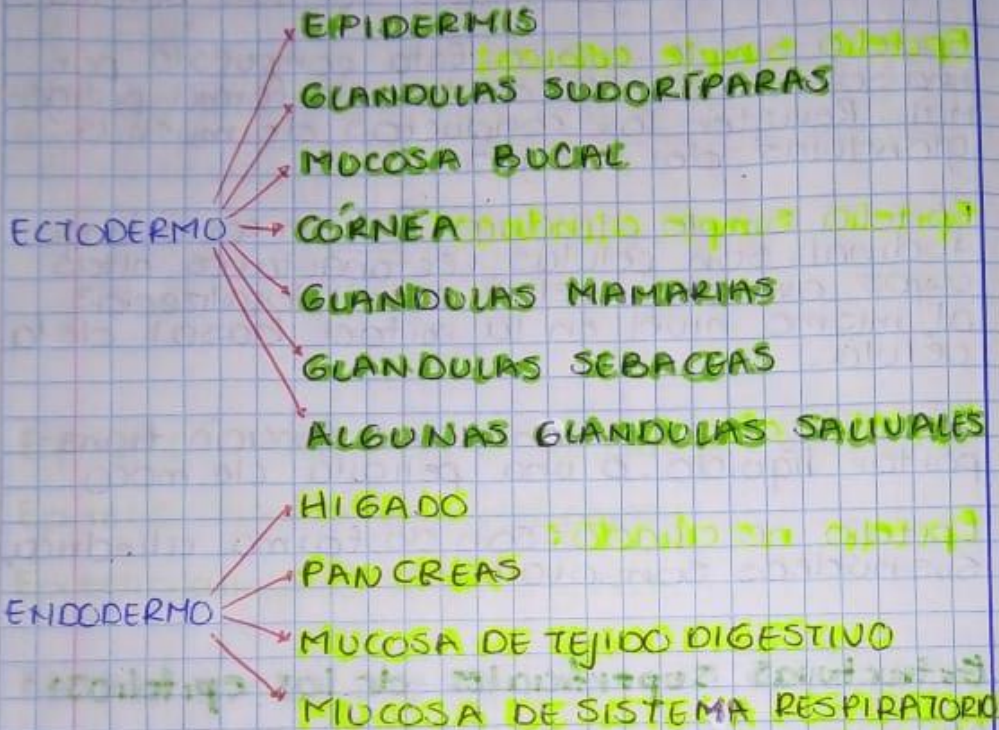 EPIDERMIS
GLANDULAS SUDORÍPARAS
MOCOSA BUCAL
ECTODERMO
CÓRNEA
GLANDULAS MAMARIAS
GLANDULAS SEBACEAS
ALGUNAS GLANDULAS SALIVALES
HIGADO
PANCREAS
ENDODERMO
MUCOSA DE TEJIDO DIGESTIVO
MUCOSA DE SISTEMA RESPIRATORIO